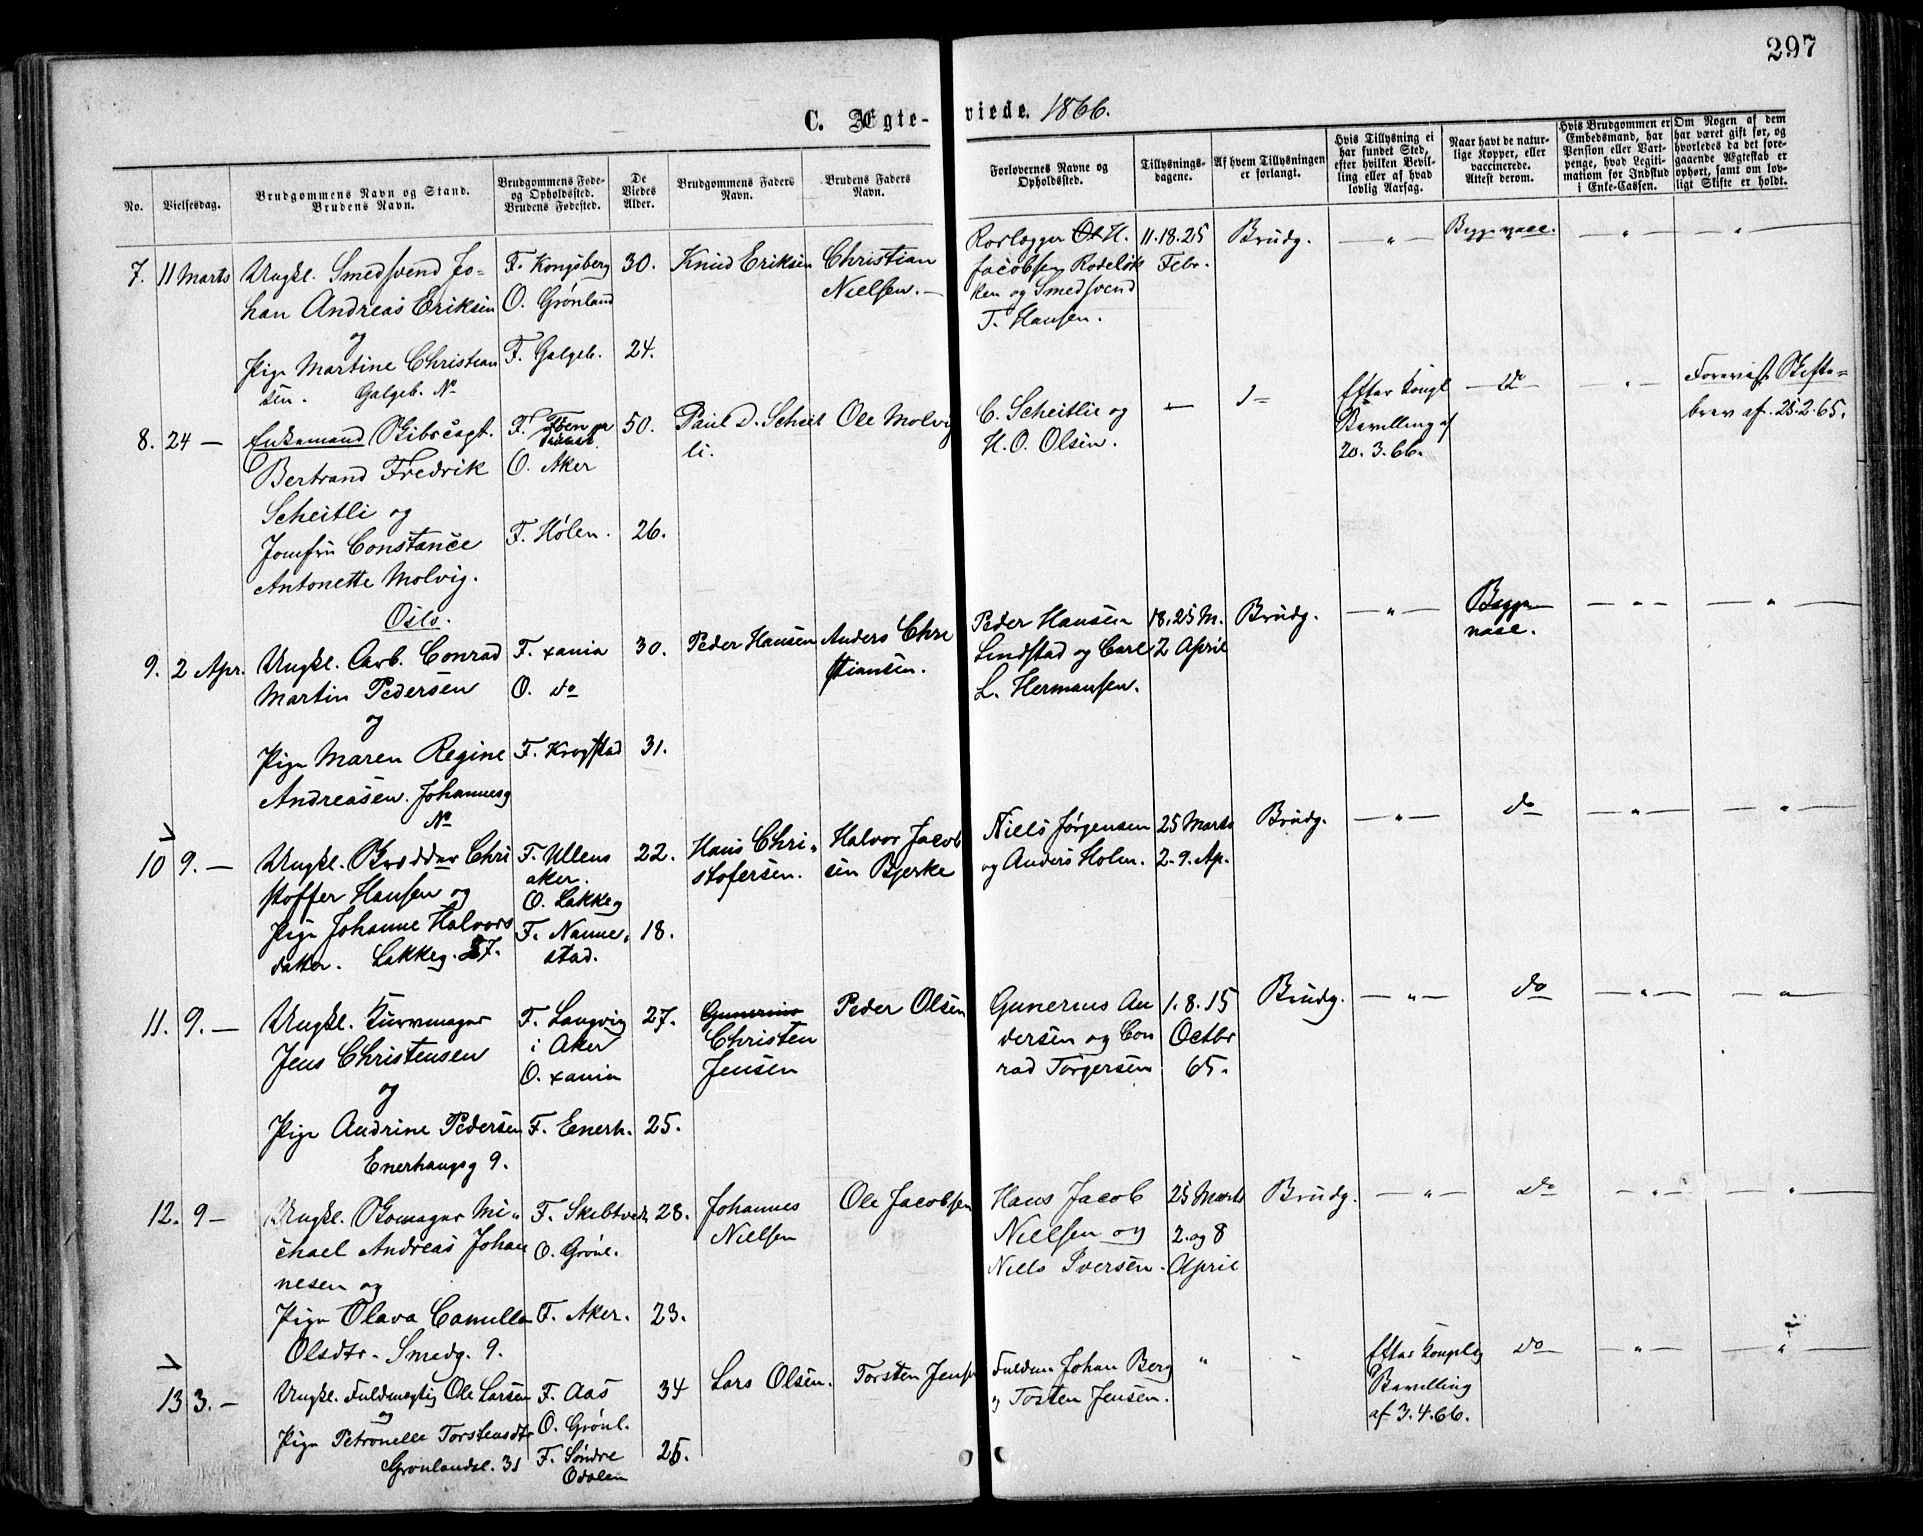 297
C. Ægte-
viede. 1866.
No.
Vielsesdag.
Brudgommens Navn og Stand.
Brudens Navn.
Brudgommens Føde-
og Opholdssted.
Brudens Fødested.
De
Viedes
Alder.
Brudgommens Faders
Navn.
Brudens Faders
Navn.
Forlovernes Navne og
Opholdssted.
Tillysnings-
dagene.
Af hvem Tillysningen
er forlangt.
Hvis Tillysning ei
har fundet Sted,
efter hvilken Bevil-
ling eller af hvad
lovlig Aarsag.
Naar havt de natur-
lige Kopper, eller
vaccinerede.
Attest derom.
Hvis Brudgommen er
Embedsmand, har
Pension eller Vart-
penge, hvad Legiti-
mation for Indskud
i Enke-Cassen.
Om Nogen af dem
har været gift før, og
hvorledes da det fore-
gaaende Ægteskab er
ophørt, samt om lov-
ligt Skifte er holdt.
7. 11 Marts Ungkl. Smedsvend Jo-
han Andreas Eriksen
og
Pige Martine Christian
sen. Galgeb. No
F. Kongsberg
O. Grønland
F. Galgeb.
30.
24.
Knud Eriksen
Christian
Nielsen. —
Rorlægger H.
Jacobsen Rodeløk
ken og Smedsvend
T. Hansen.
11. 18. 25
Febr.
Brudg.
— " —
— " —
— " —
8. 24 — Enkemand Skibscapt.
Bertrand Fredrik
Scheitli og
Jomfru Constance
Antonette Molvig.
Oslo.
F.
O. Aker
F. Hølen.
50.
26.
Paul D. Scheit
li.
Ole Molvig
C. Scheitlie og
H. O. Olsen.
—
Efter Kongl
Bevilling af
20. 3. 66.
— do —
— " —
Forevist Skifte=
brev af 25. 2. 65.
9. 2 Apr. Ungkl. Arb. Conrad
Martin Pedersen
og
Pige Maren Regine
Andreasen. Johannesg
No
F. xania
O. do
F. Krogstad
30.
31.
Peder Hansen
Anders Chri
stiansen.
Peder Hansen
Lindstad og Carl
L. Hermansen.
18. 25 M.
2 April
Brudg.
— " —
— " —
— " —
10 9. — Ungkl. Chri
stoffer Hansen og
Pige Johanne Halvors
datter. Lakkeg. 37.
F. Ullens
aker.
O. Lakkeg
F. Nanne-
stad.
22.
18.
Hans Chri-
stofersen.
Halvor Jacob
sen Bjerke
Niels Jørgensen
og Anders Holm.
25 Marts
2. 9. Ap.
Brudg.
— " —
do
— " —
— " —
11. 9. — Ungkl. Kurvmager
Jens Christensen
og
Pige Andrine Pedersen
Enerhaugsg 9.
F. Langvig
i Aker
O. xania
F. Enerh.
27.
25.
Gunerius
Christen
Jensen
Peder Olsen
Gunerius An
dersen og Con
rad Torgersen
1. 8. 15
Octbr
65.
Brudg.
— " —
do
— " —
— " —
12. 9 — Ungkl. Skomager Mi-
chael Andreas Johan
nesen og
Pige Olava Camilla
Olsdtr. Smedg. 9.
F. Skibtvedt
O. Grønl.
F. Aker.
28.
23.
Johannes
Nielsen
Ole Jacobsen
Hans Jacob
Nielsen og
Niels Iversen.
25 Marts
2. og 8
April
Brudg.
— " —
do
— " —
— " —
13 3. — Ungkl. Fuldmægtig Ole Larsen
og
Pige Petronelle Torstensdtr
Grønlandsl. 31
F. Aas
O. Grønl.
F. Søndre
Odalen
34
25.
Lars Olsen.
Torsten Jensen
Fuldm. Johan Berg
" Tosten Jensen.
"
"
Efter Kongelig
Bevilling
af 3. 4. 66.
do
— " —
— " —